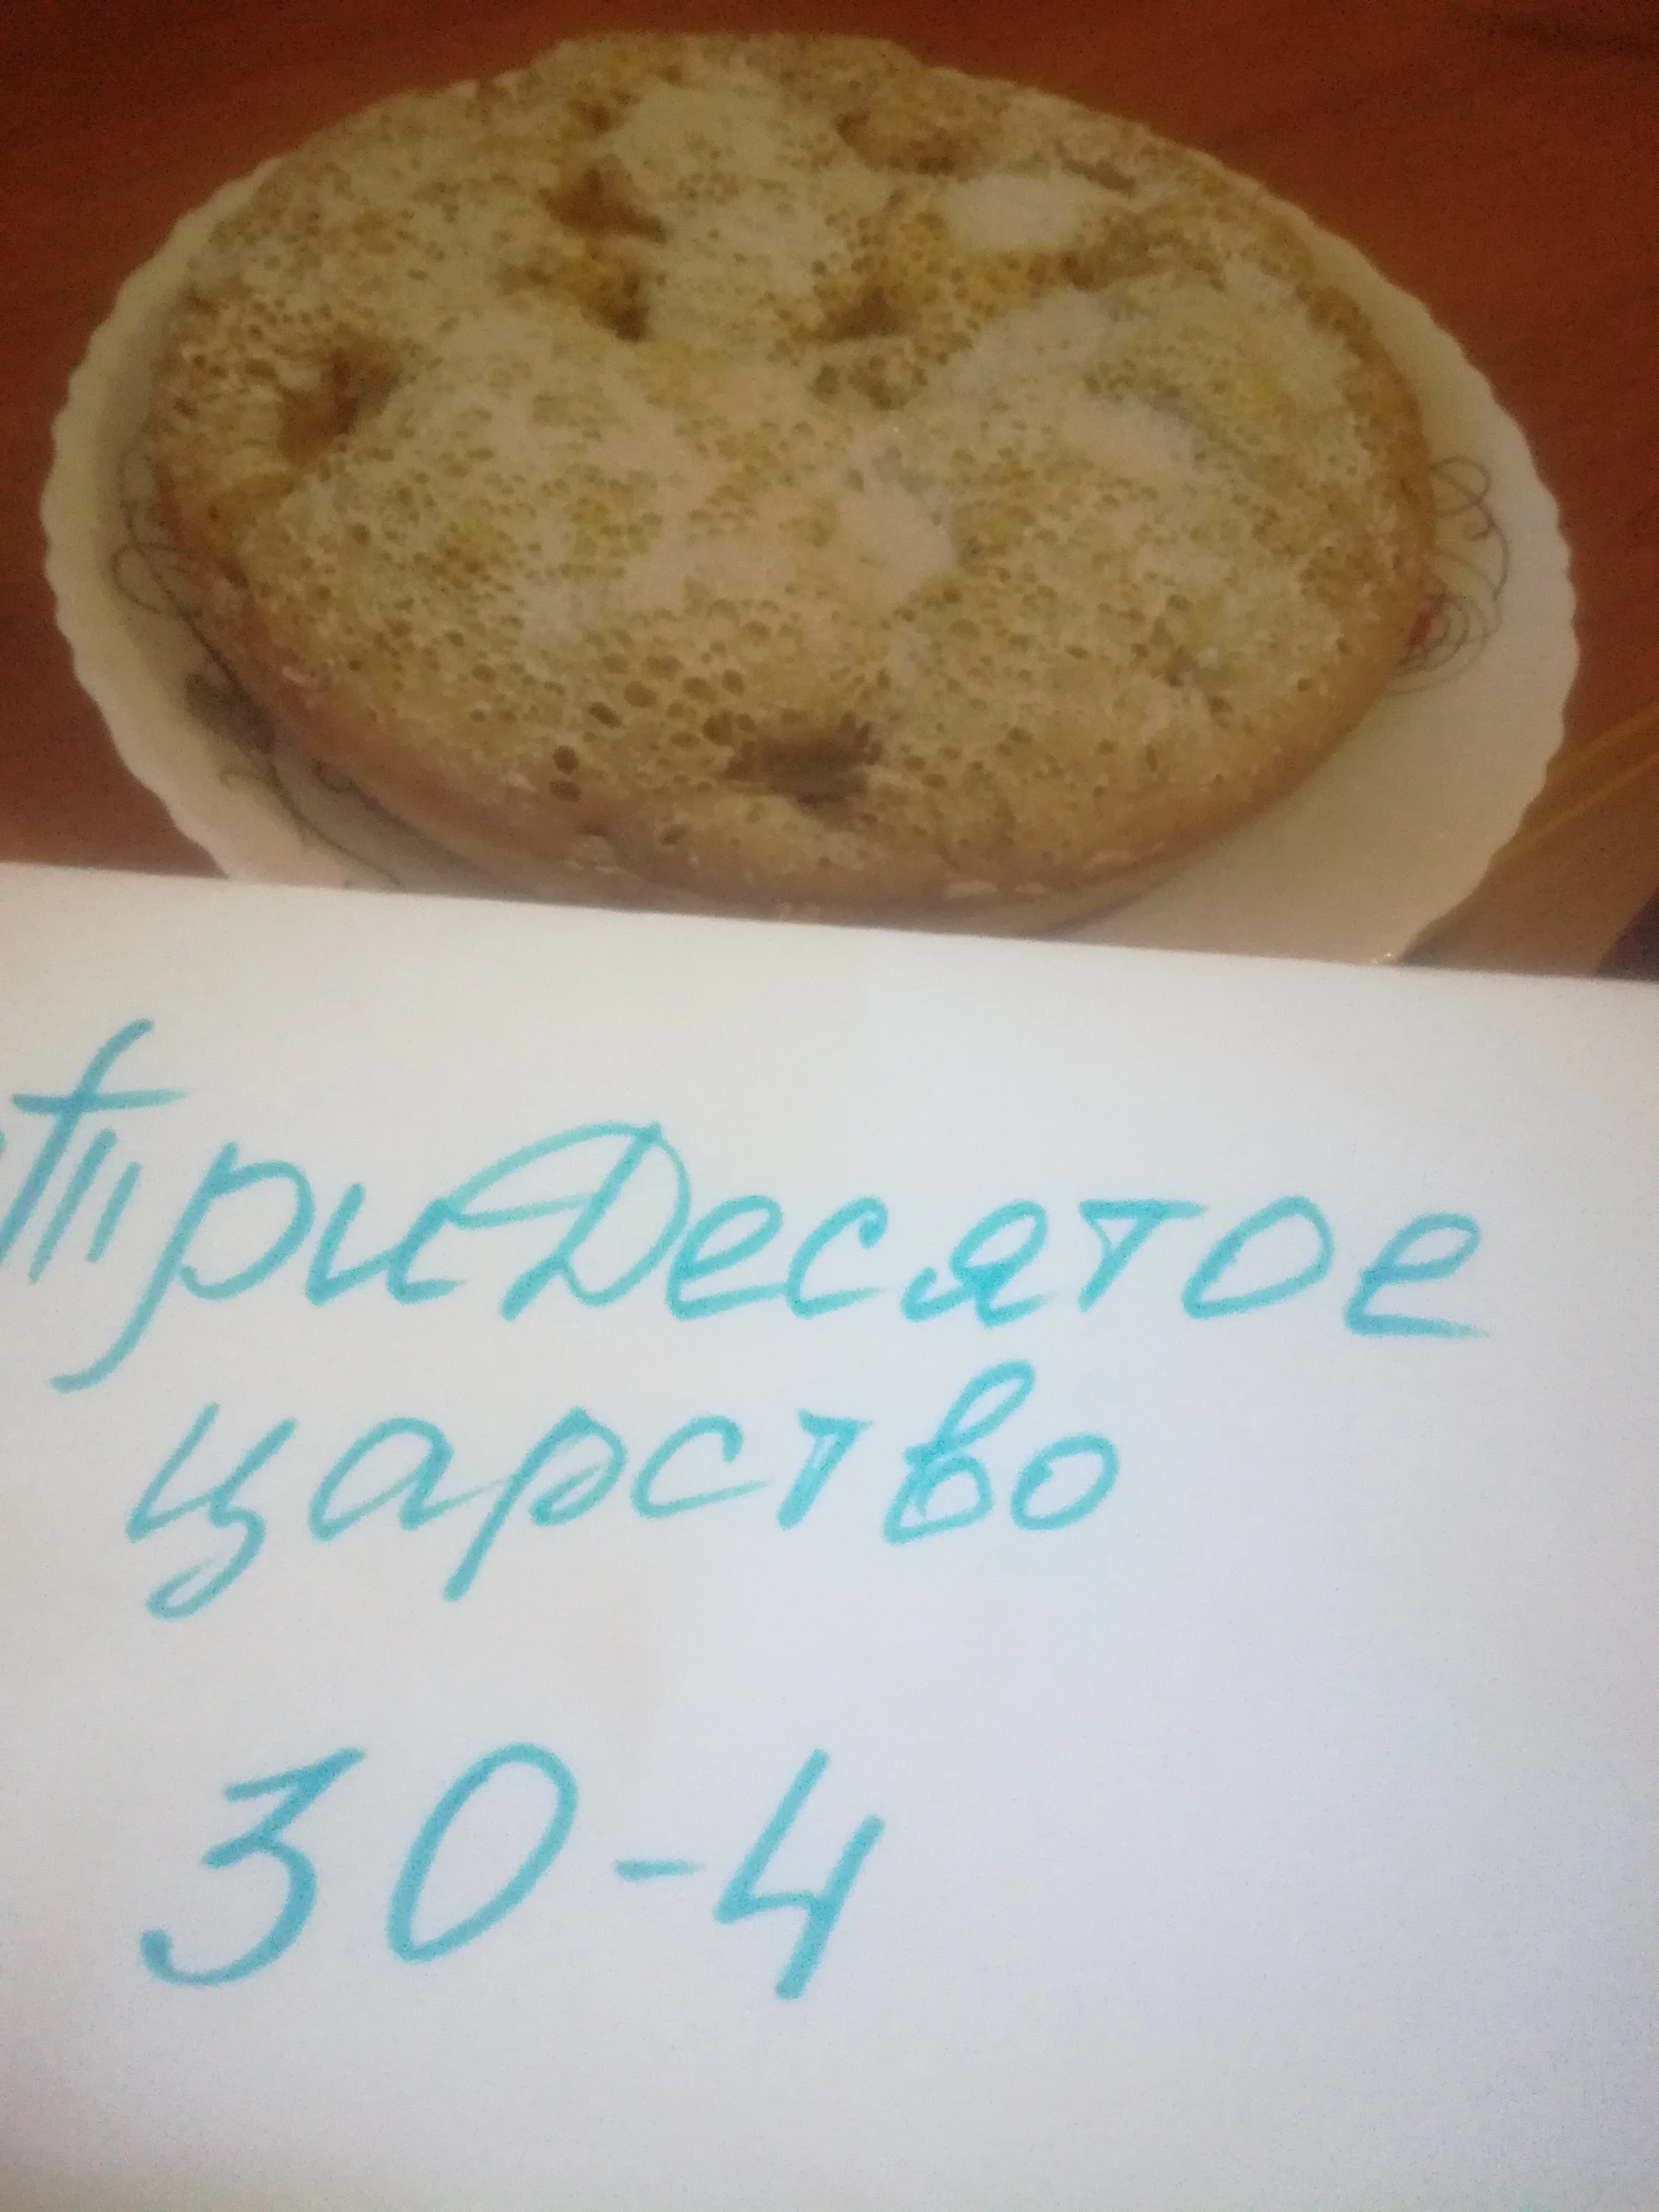 триДесятое
царство
30-4